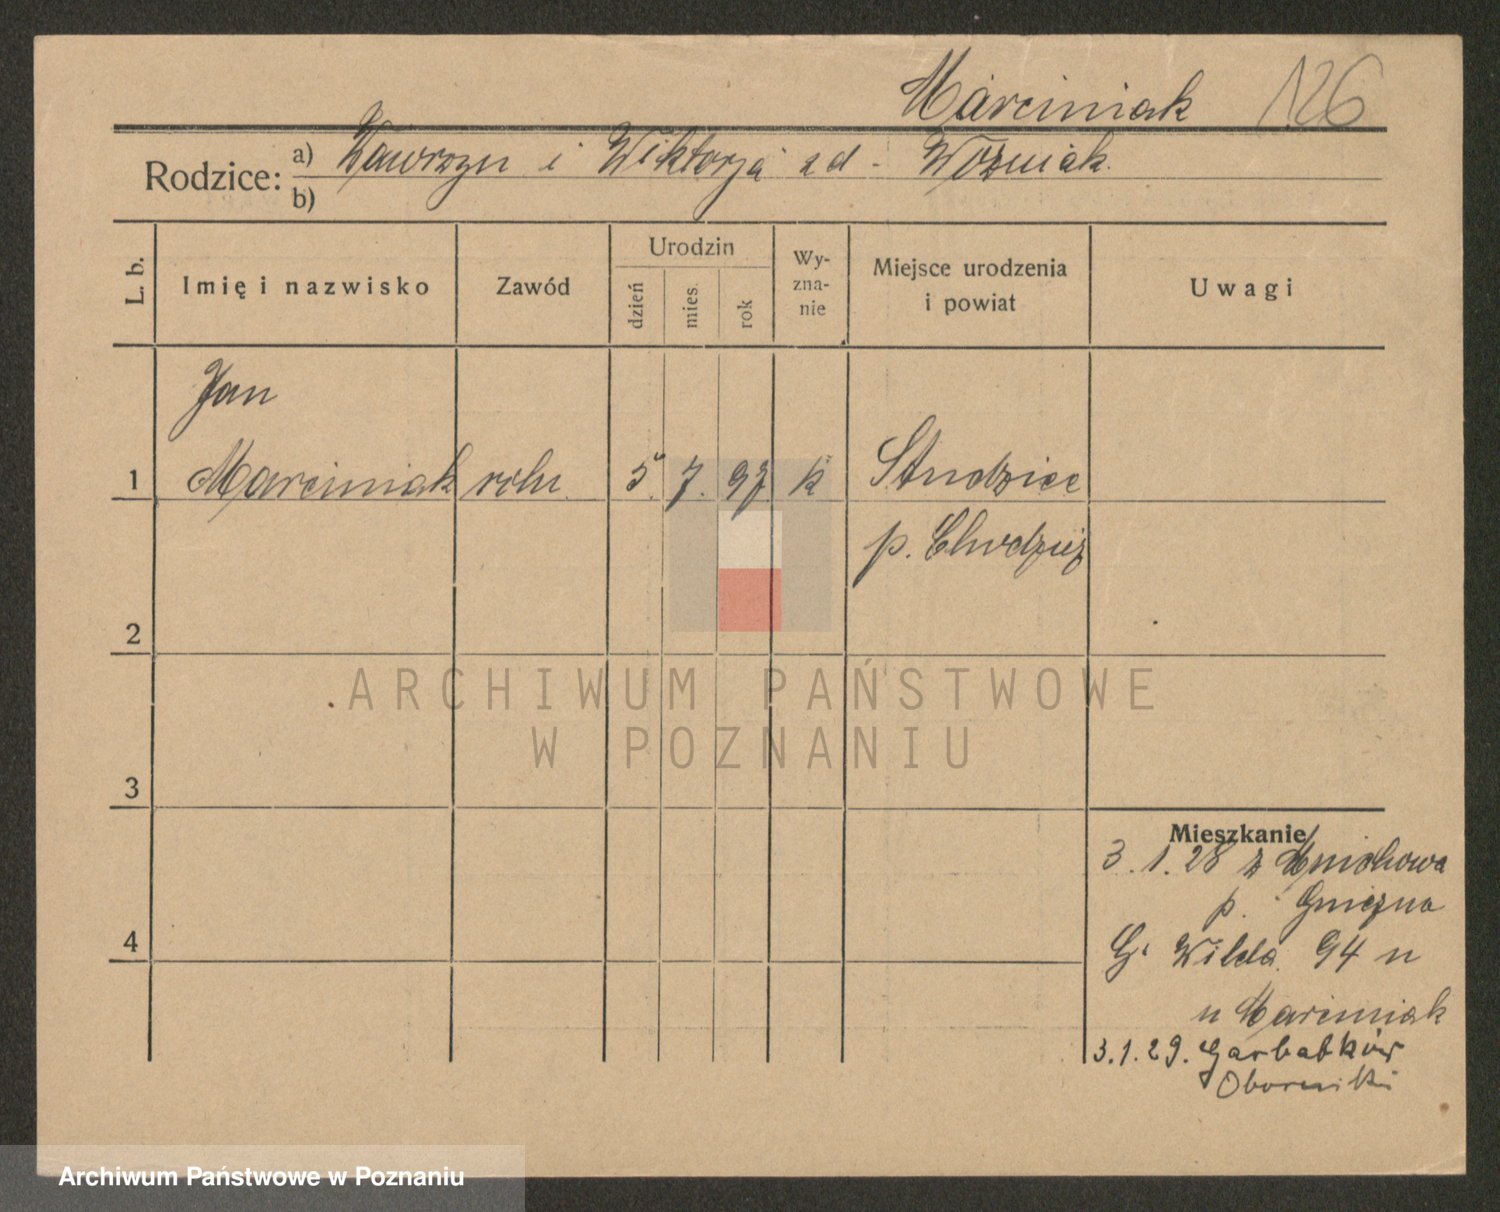 Marciniak 126
Rodzice: a) Wawrzyn i Wiktorja zd - Woźniak.
b)
L. b.
Imię i nazwisko
Zawód
Urodzin
dzień
mies.
rok
Wy-
zna-
nie
Miejsce urodzenia
i powiat
Uwagi
Jan
1 Marciniak roln. 5. 7. 97 k Studziec
p. Chodzież
2
3
4
ARCHIWUM PAŃSTWOWE
W POZNANIU
Mieszkanie
3.1.28 z Mnichowa
p. Gniezno
G. Wilda 94 n
u Marciniak
3.1.29. Garbatków
Oborniki
Archiwum Państwowe w Poznaniu